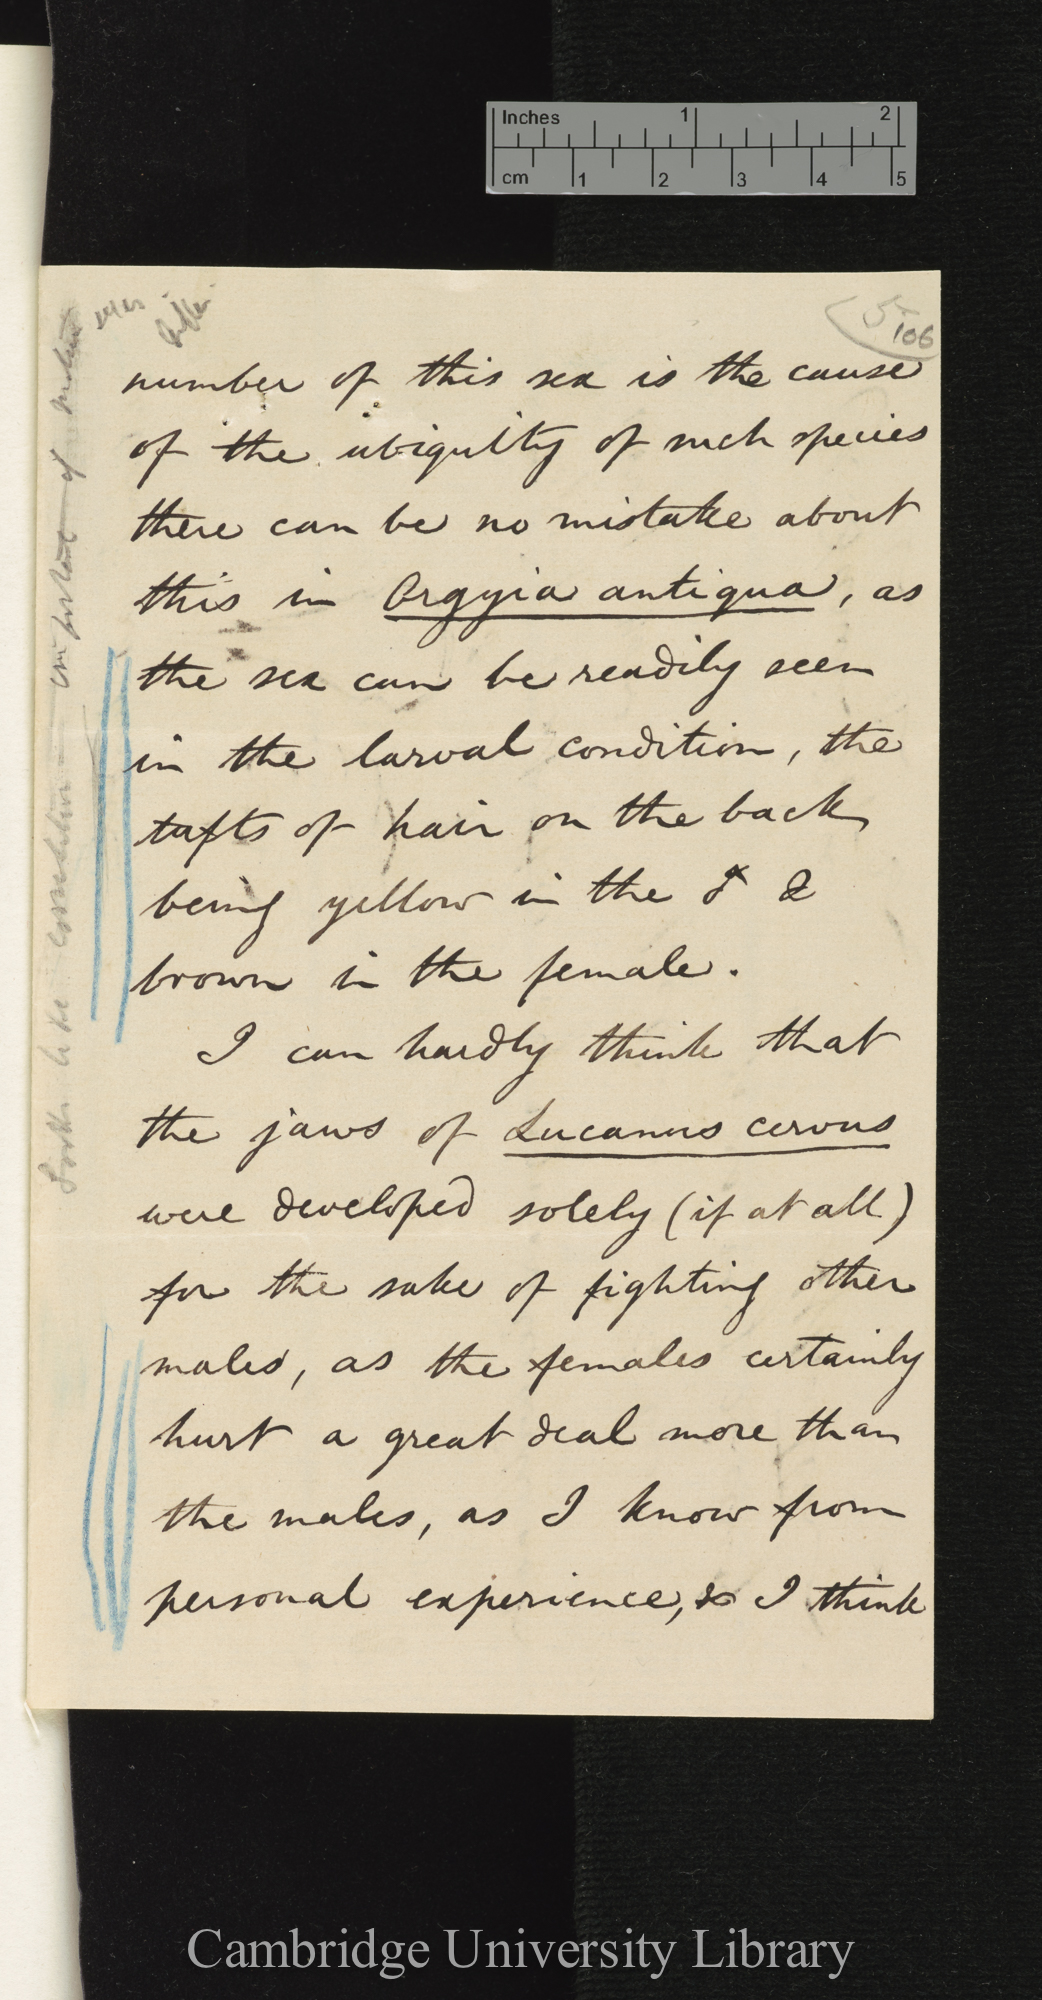 Inches 1 2
cm 1 2 3 4 5
106
number of this sex is the cause
of the ubiquity of such species
there can be no mistake about
this in Orgyia antiqua, as
the sex can be readily seen
in the larval condition, the
tufts of hair on the back
being yellow in the ♂ &
brown in the female.
I can hardly think that
the jaws of Lucanus cervus
were developed solely (if at all)
for the sake of fighting other
males, as the females certainly
hurt a great deal more than
the males, as I know from
personal experience, & I think
Looks like correlation — instead of
Cambridge University Library